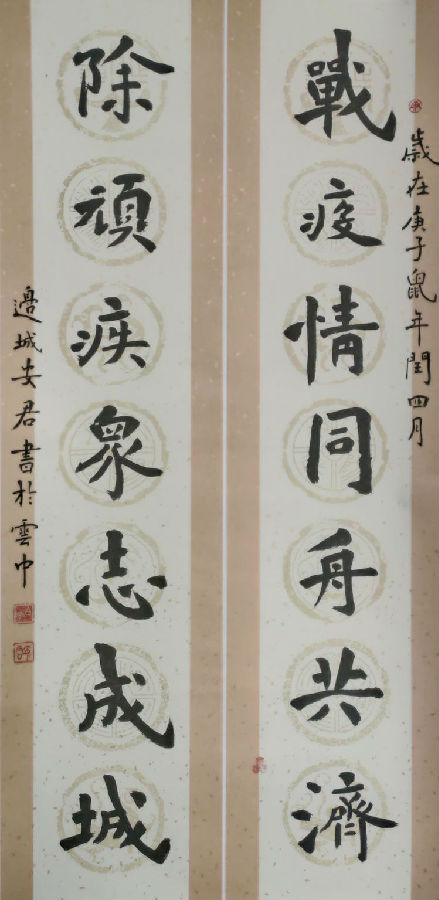 歲在庚子鼠年閏四月
戰疫情同舟共濟
除頑疾眾志成城
邊城安君書於雲中